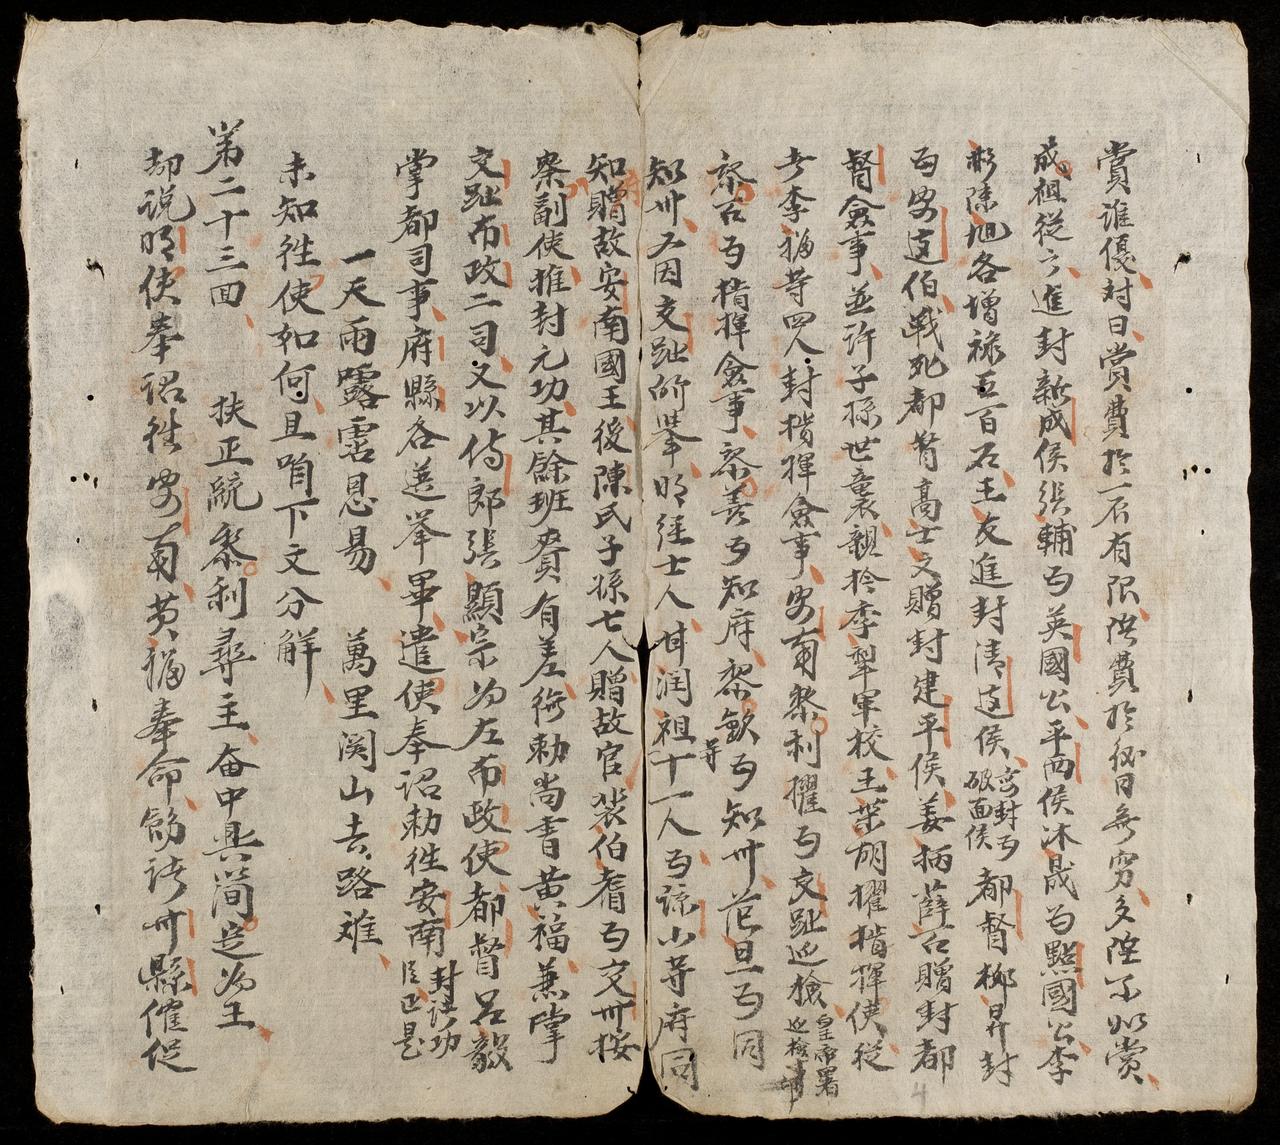 賞誰優対曰賞費於一辰有限洪費於後日無穷多陞不如賞
成祖従之進封新成侯張輔为英國公平西侯沐晟为黔國公李
彬陳旭各增禄五百石王友進封清遠侯 都督柳昇封
安封为
破面侯
为安遠伯戦死都督高士文贈封建平侯姜柄薛 贈封都
督僉事並許子孫世襲親擒李犁軍校王柴胡擢指揮使從
者李福等四人封指揮僉事安南黎利擢为交趾巡檢
皇帝署
巡檢事
黎 为指揮僉事黎善为知府黎欽为知州范旦为同
知州又因交趾所举明経士人甘润祖十一人为諒山等府同
等
知贈故安南國王後陳氏子孫七人贈故官裴伯耆为交州按
察副使推封元功其餘班賚有差後勅尚書黄福兼掌
交趾布政二司又以侍郎張顯宗为左布政使都督吕毅
掌都司事府縣各選举畢遣使奉詔勅徃安南
封諸功
臣
一天雨露霑恩易 萬里関山去路难
未知徃使如何且聴下文分解
苐二十三囬 扶正統黎利尋主 奋中興简定为王
却説明使奉詔徃安南黄福奉命飭諸州縣催促